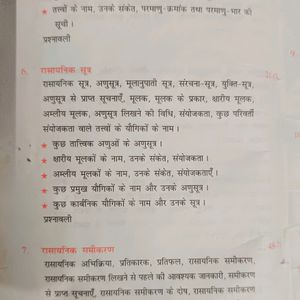 ★ तत्त्वों के नाम, उनके संकेत, परमाणु-क्रमांक तथा परमाणु-भार की
सूची।
प्रश्नावली
6. रासायनिक सूत्र
रासायनिक सूत्र, अणुसूत्र, मूलानुपाती सूत्र, संरचना-सूत्र, युक्ति-सूत्र,
अणुसूत्र से प्राप्त सूचनाएँ, मूलक, मूलक के प्रकार, क्षारीय मूलक,
अम्लीय मूलक, अणुसूत्र लिखने की विधि, संयोजकता, कुछ परिवर्ती
संयोजकता वाले तत्त्वों के यौगिकों के नाम।
★ कुछ तात्त्विक अणुओं के अणुसूत्र।
★ क्षारीय मूलकों के नाम, उनके संकेत, संयोजकता।
★ अम्लीय मूलकों के नाम, उनके संकेत, संयोजकताएँ।
★ कुछ प्रमुख यौगिकों के नाम और उनके अणुसूत्र।
★ कुछ कार्बनिक यौगिकों के नाम और उनके सूत्र।
प्रश्नावली
7. रासायनिक समीकरण
रासायनिक अभिक्रिया, प्रतिकारक, प्रतिफल, रासायनिक समीकरण,
रासायनिक समीकरण लिखने से पहले की आवश्यक जानकारी, समीकरण
से प्राप्त सूचनाएँ, रासायनिक समीकरण के दोष, रासायनिक समीकरण